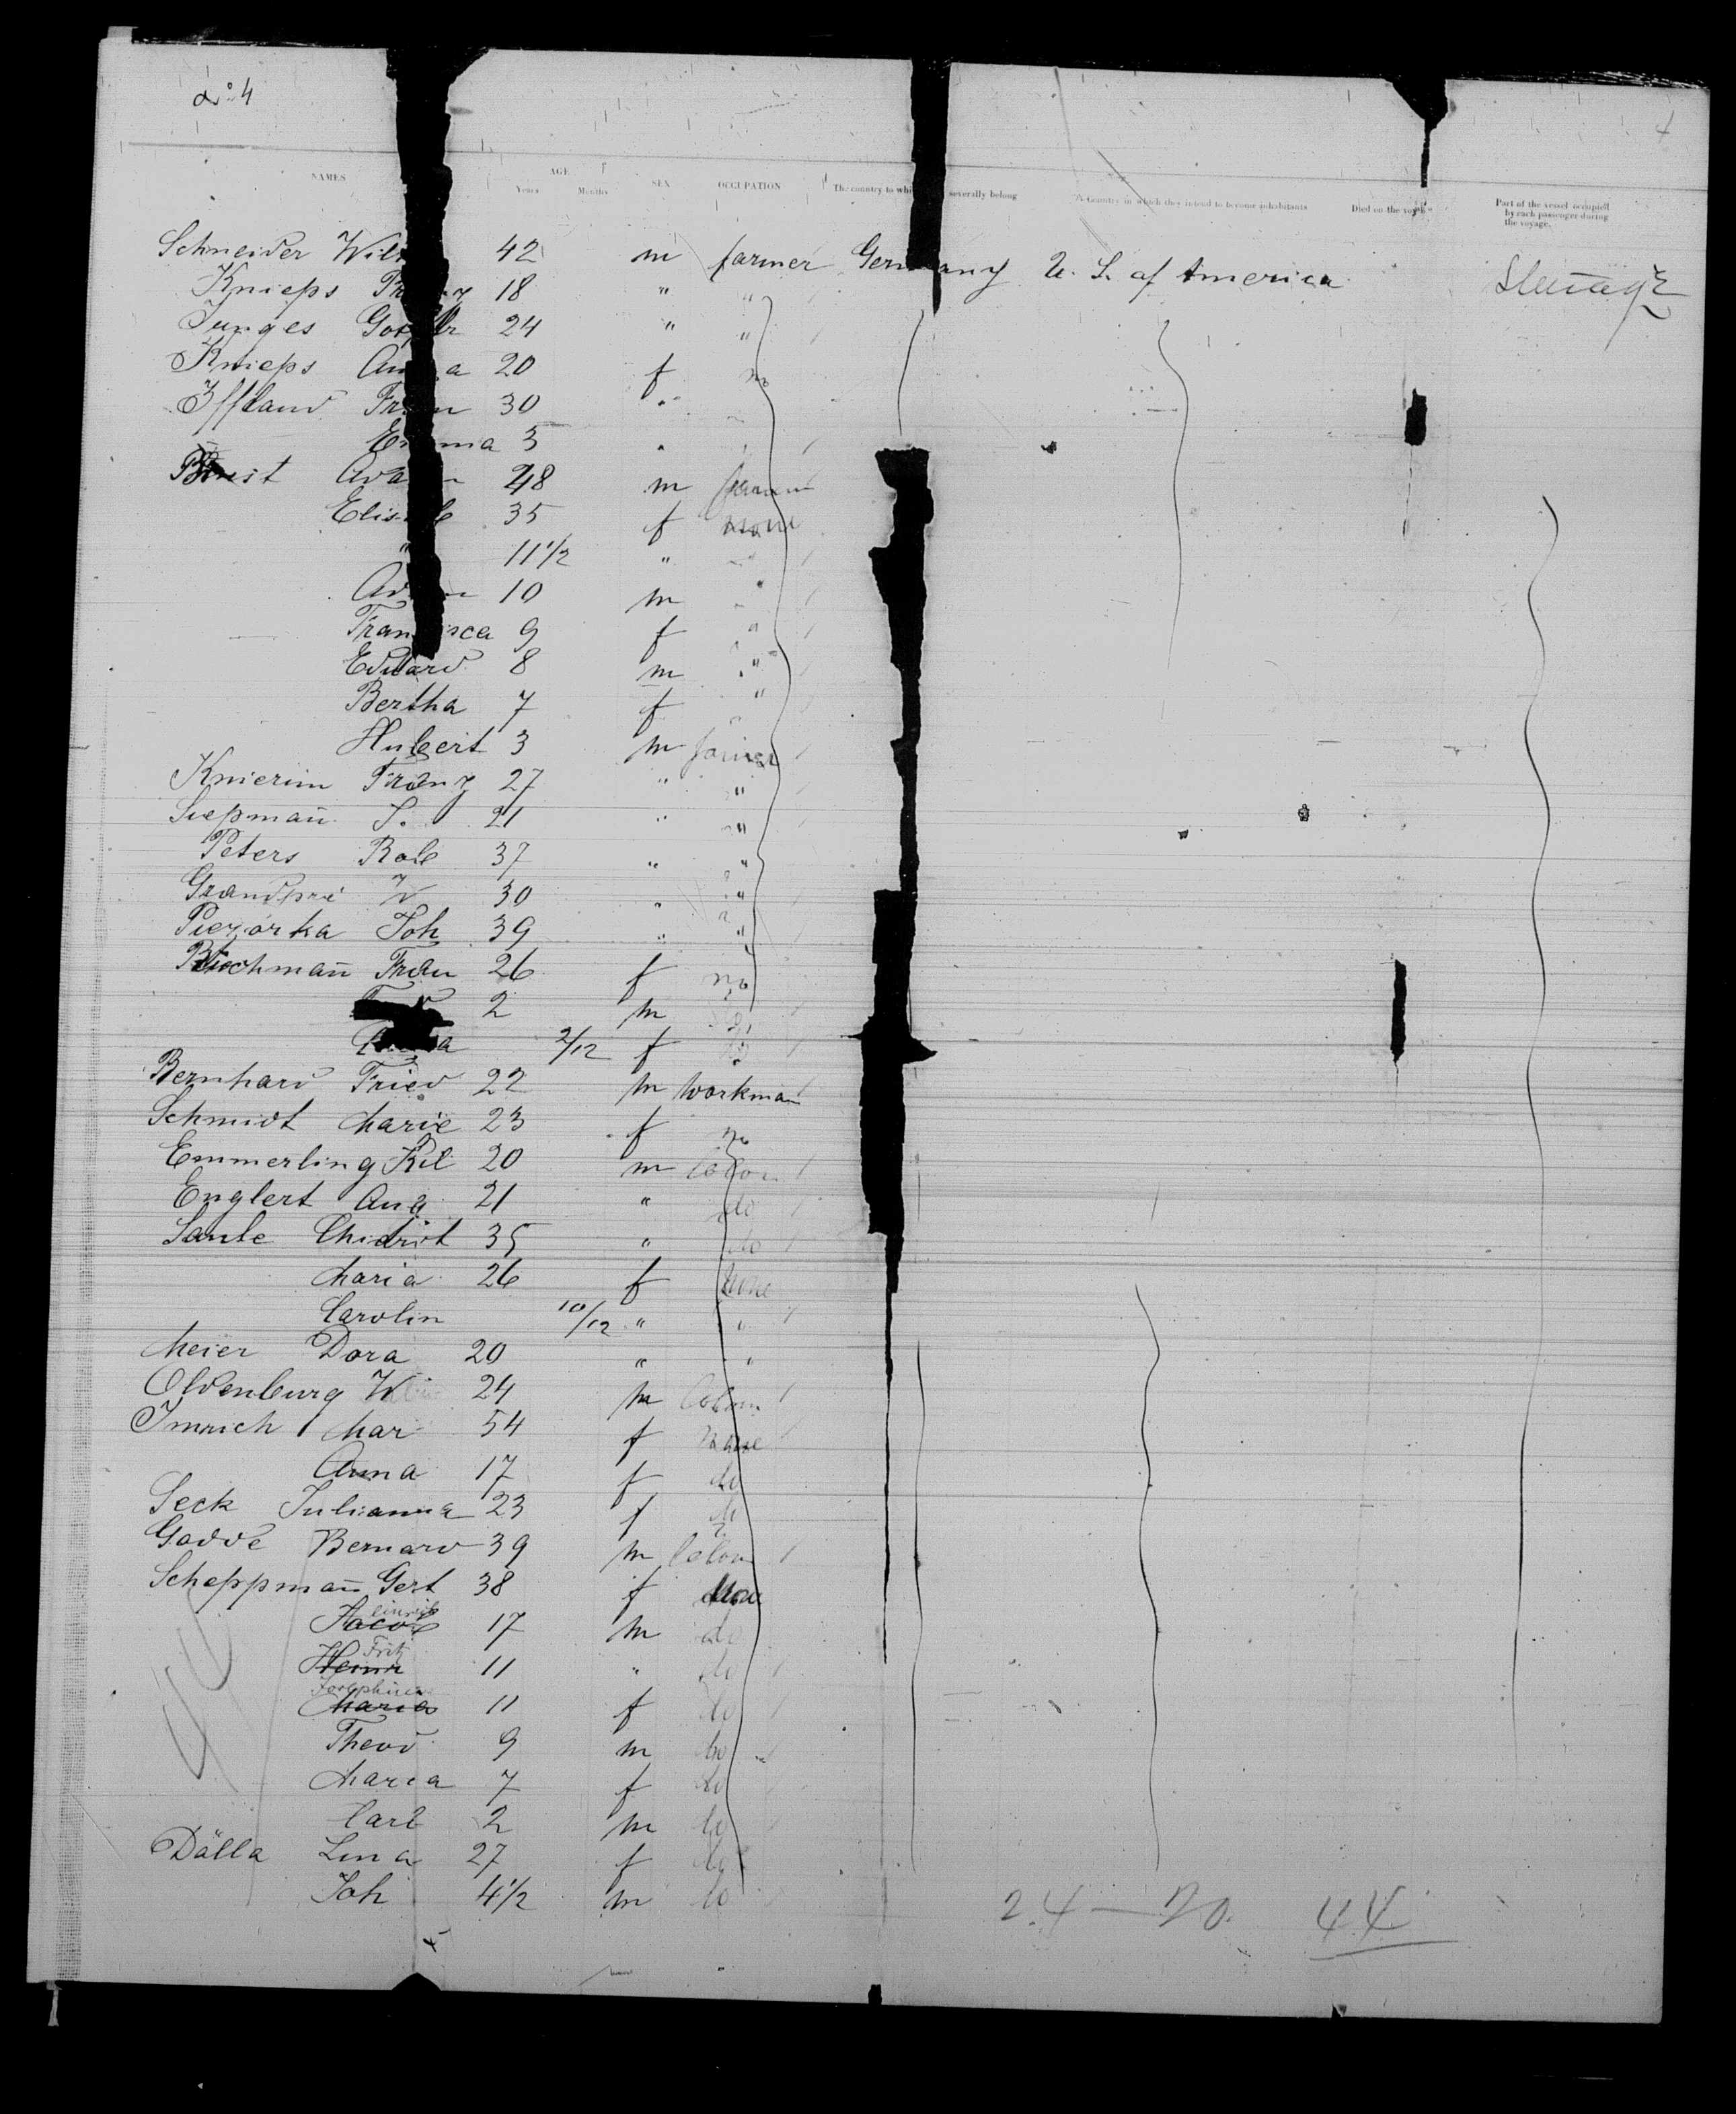 No 4
NAMES AGE Years Months SEX OCCUPATION The country to whi severally belong Country in which they intend to become inhabitants Died on the voyage Part of the vessel occupied by each passenger during the voyage.
Schneider Wil 42 m farmer Germany U. S. of America Steerage
Knieps Franz 18 " "
Junges 24 " "
Knieps Anna 20 f no
Iffland Frau 30 "
Emma 5 "
Adam 48 m farmer
Elisab 35 f none
" 11 1/2 " "
Adam 10 m "
Francisca 9 f "
Eduard 8 m "
Bertha 7 f "
Hubert 3 m
Knierim Franz 27 " "
Siepmañ S. 21 " "
Peters Rob 37 " "
Grandpré W 30 " "
Piezorka Joh 39 " "
Frau 26 f no
2 m
2/12 f
Bernhard Fried 22 m workman
Schmidt Marie 23 f no
Emmerling Kil 20 m
Englert Aug 21 " do
Saule 35 " do
Maria 26 f none
Carolin 10/12 " "
Meier Dora 20 " "
Oldenburg W 24 m
Imrich Mar 54 f none
Anna 17 f do
Seck Julianna 23 f do
Godde Bernard 39 m
Scheppmañ Gert 38 f none
Jacob Heinrich 17 m do
Heinr Fritz 11 " do
Maria Josephine 11 f do
Theod 9 m do
Maria 7 f do
Carl 2 m do
Dälla Lina 27 f do
Joh 4 1/2 m do
24 — 20. 44